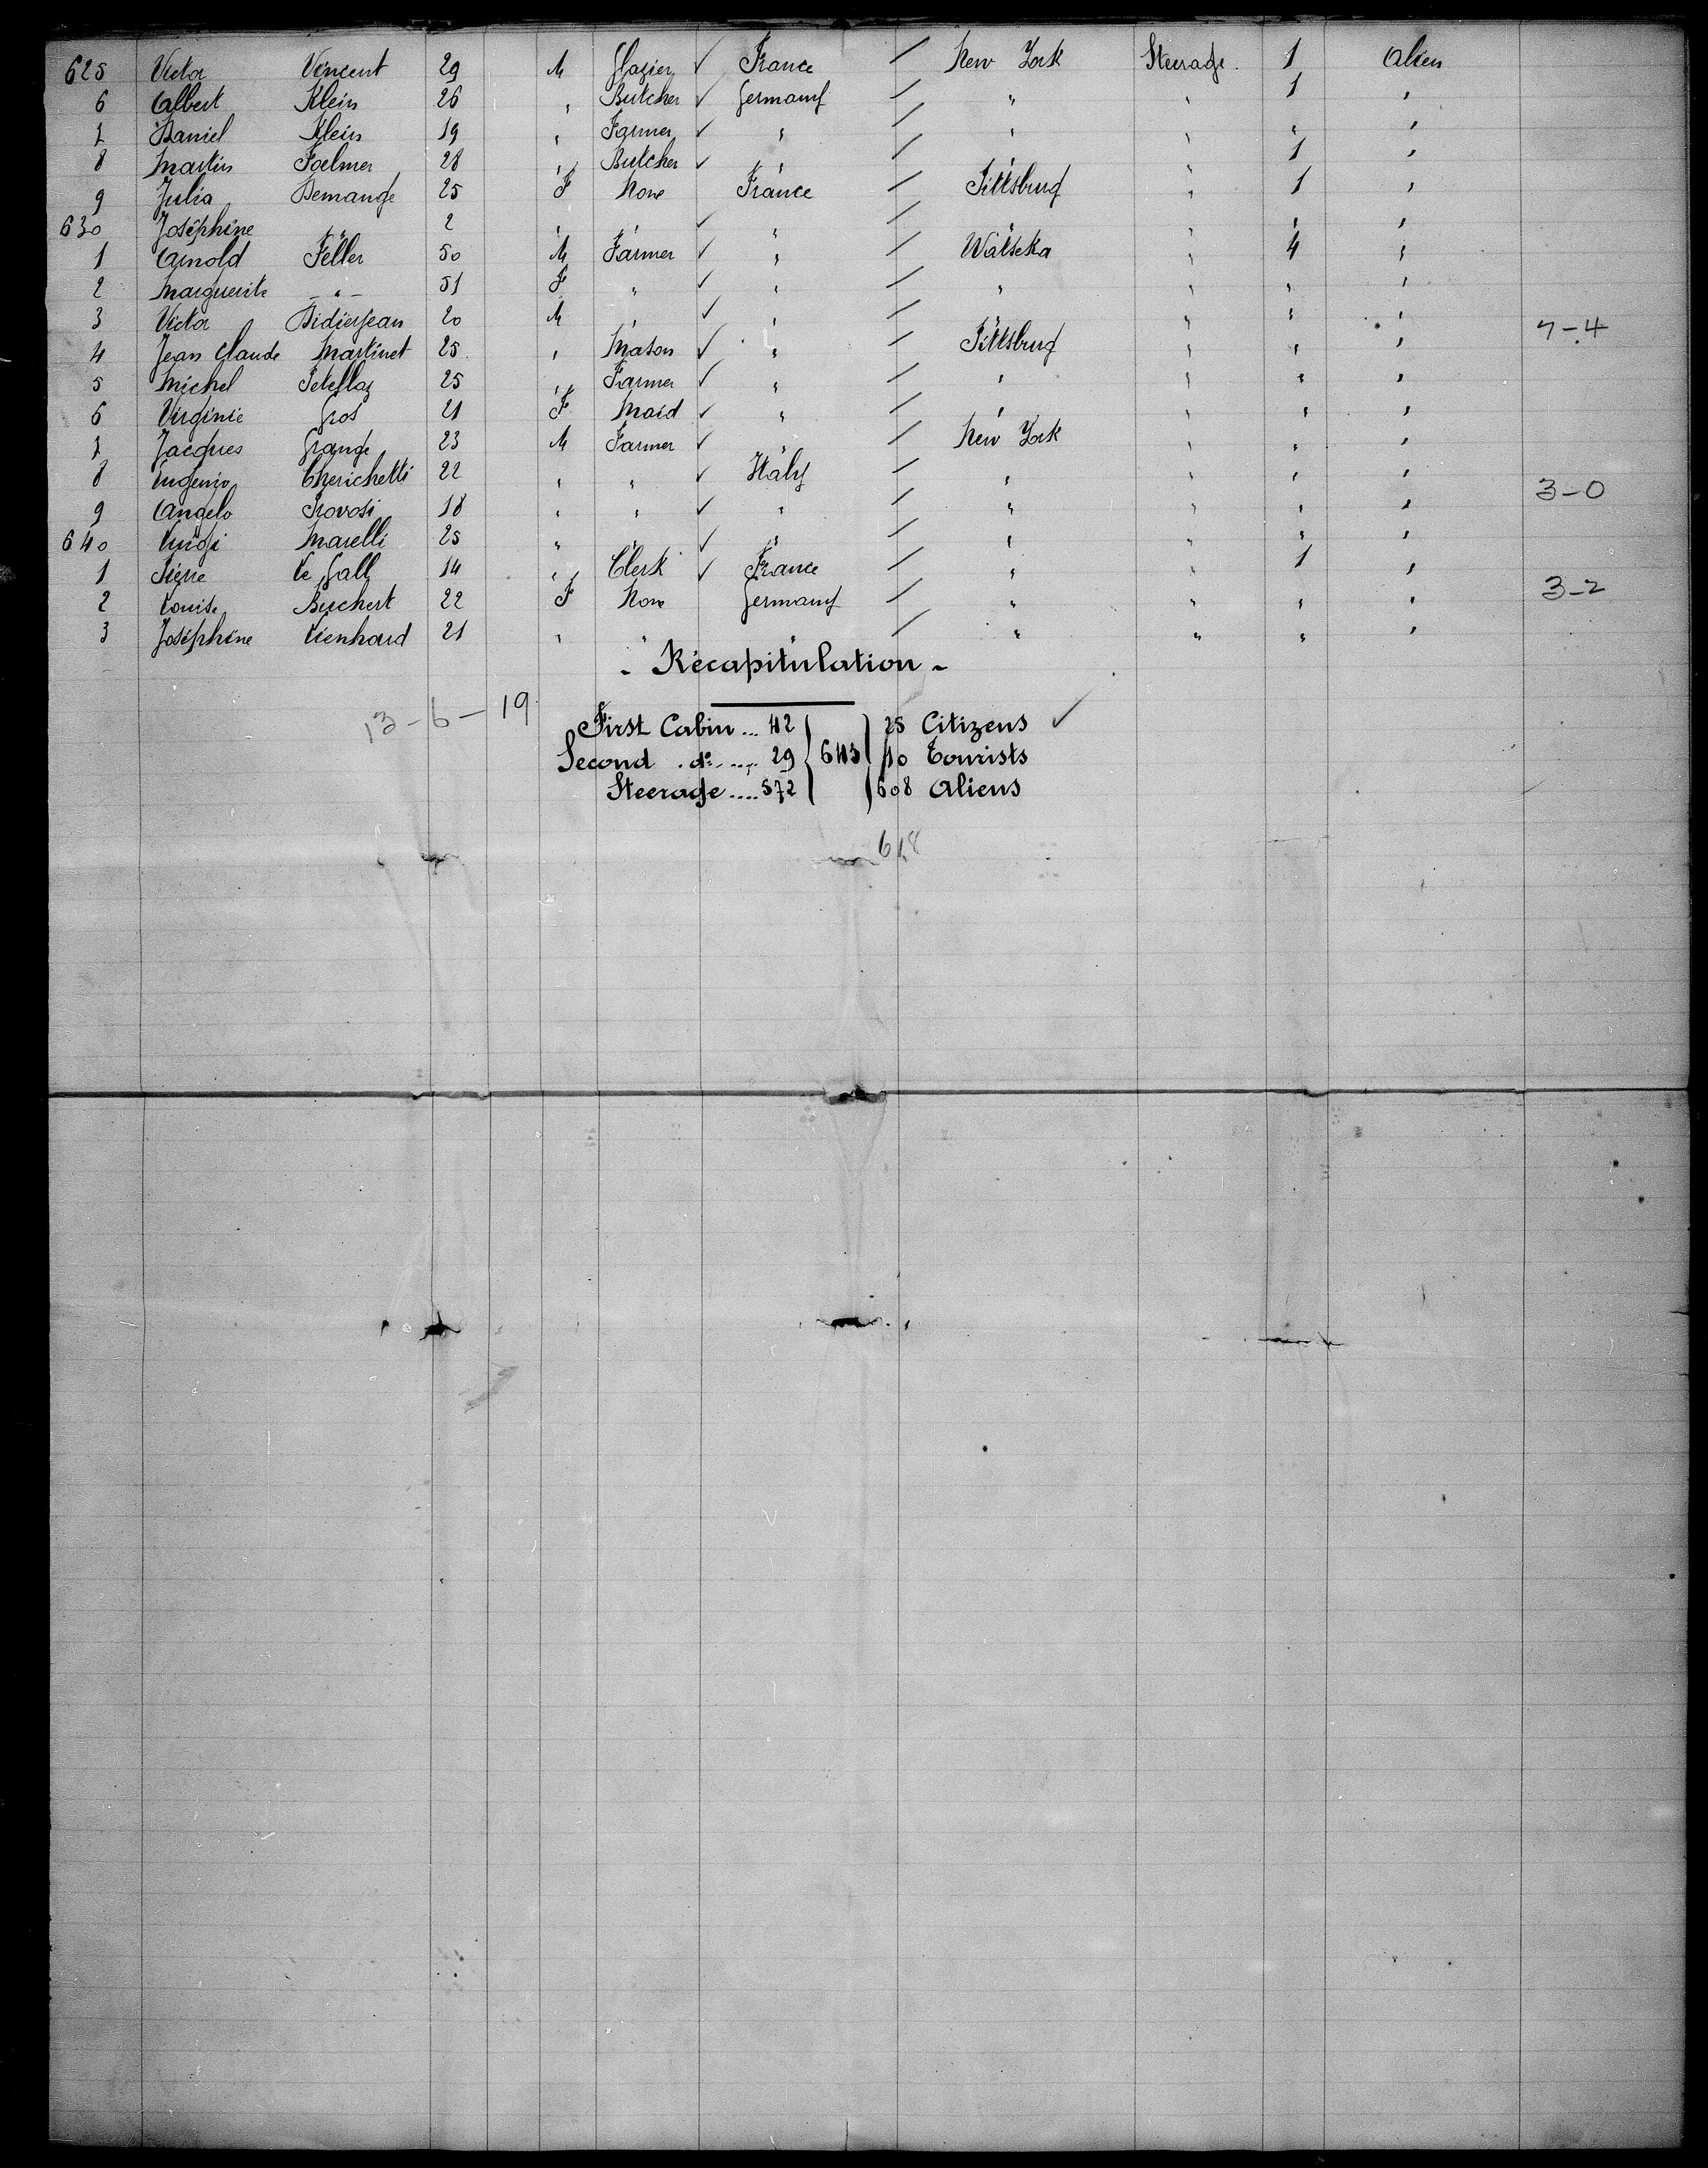 625 Victor Vincent 29 M Glazier ✓ France / New York Steerage 1 Alien
6 Albert Klein 26 " Butcher ✓ Germany / " " 1 "
7 Daniel Klein 19 " Farmer ✓ " / " " " "
8 Martin Faelmer 28 " Butcher ✓ " / " " 1 "
9 Julia Demange 25 F None France / Pittsburg " 1 "
630 Joséphine " 2 " " ✓ " / " " " "
1 Arnold Feller 50 M Farmer ✓ " / Watseka " 4 "
2 Marguerite -"- 51 F " ✓ " / " " " "
3 Victor Didierjean 20 M " ✓ " / " " " " 7-4
4 Jean Claude Martinet 25 " Mason ✓ " / Pittsburg " " "
5 Michel Petellaz 25 " Farmer ✓ " / " " " "
6 Virginie Gros 21 F Maid ✓ " / " " " "
7 Jacques Grange 23 M Farmer ✓ " / New York " " "
8 Eugenio Cherichetti 22 " " ✓ Italy / " " " " 3-0
9 Angelo Provosi 18 " " ✓ " / " " " "
640 Luigi Marelli 25 " " ✓ " / " " " "
1 Pierre Le Gall 14 " Clerk ✓ France / " " 1 "
2 Louise Buchert 22 F None Germany / " " " " 3-2
3 Joséphine Lienhard 21 " " " / " " " "
- Récapitulation -
13-6-19
First Cabin ... 42 25 Citizens ✓
Second . do .... 29 643 10 Tourists
Steerage .... 572 608 Aliens
618